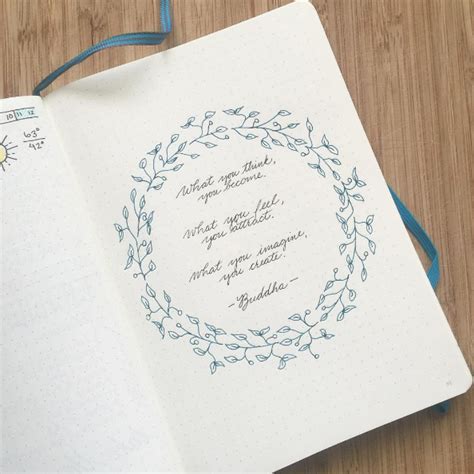 10 11 12
63°
42°
What you think,
you become.
What you feel,
you attract.
What you imagine,
you create.
-Buddha-